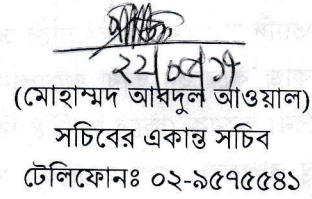 ২২|০৫|১৭
(মোহাম্মদ আবদুল আওয়াল)
সচিবের একান্ত সচিব
টেলিফোনঃ ০২-৯৫৭৫৫৪১